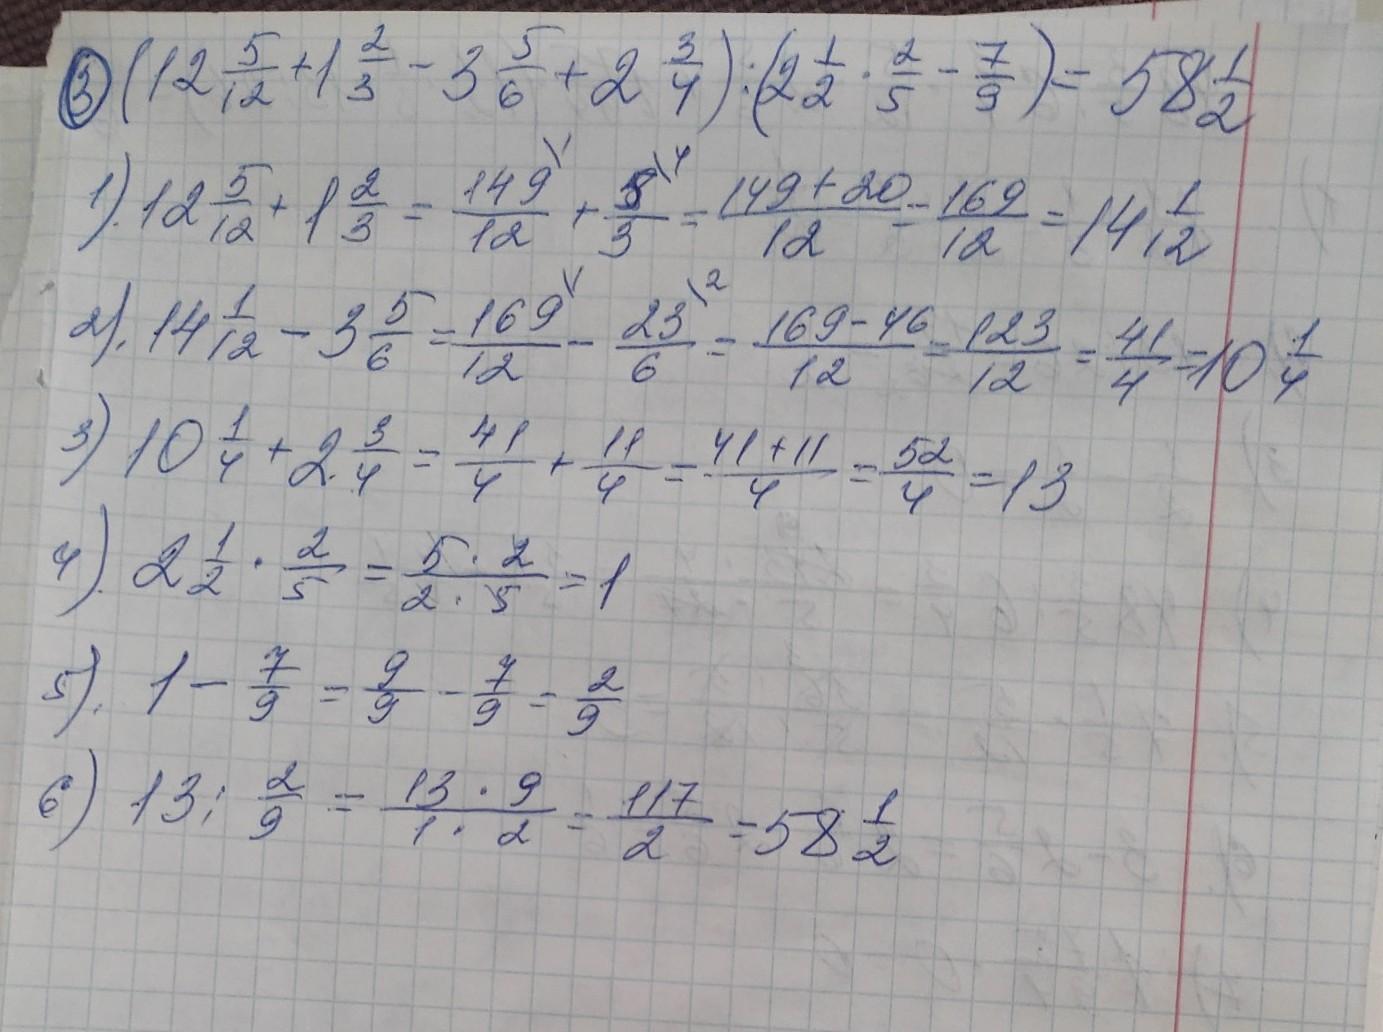 3) (12 5/12 + 1 2/3 - 3 5/6 + 2 3/4) : (2 1/2 · 2/5 - 7/9) = 58 1/2
1). 12 5/12 + 1 2/3 = 149\1/12 + 5\4/3 = 149+20/12 = 169/12 = 14 1/12
2). 14 1/12 - 3 5/6 = 169\1/12 - 23\2/6 = 169-46/12 = 123/12 = 41/4 = 10 1/4
3) 10 1/4 + 2 3/4 = 41/4 + 11/4 = 41+11/4 = 52/4 = 13
4). 2 1/2 · 2/5 = 5·2/2·5 = 1
5). 1 - 7/9 = 9/9 - 7/9 = 2/9
6) 13 : 2/9 = 13·9/1·2 = 117/2 = 58 1/2